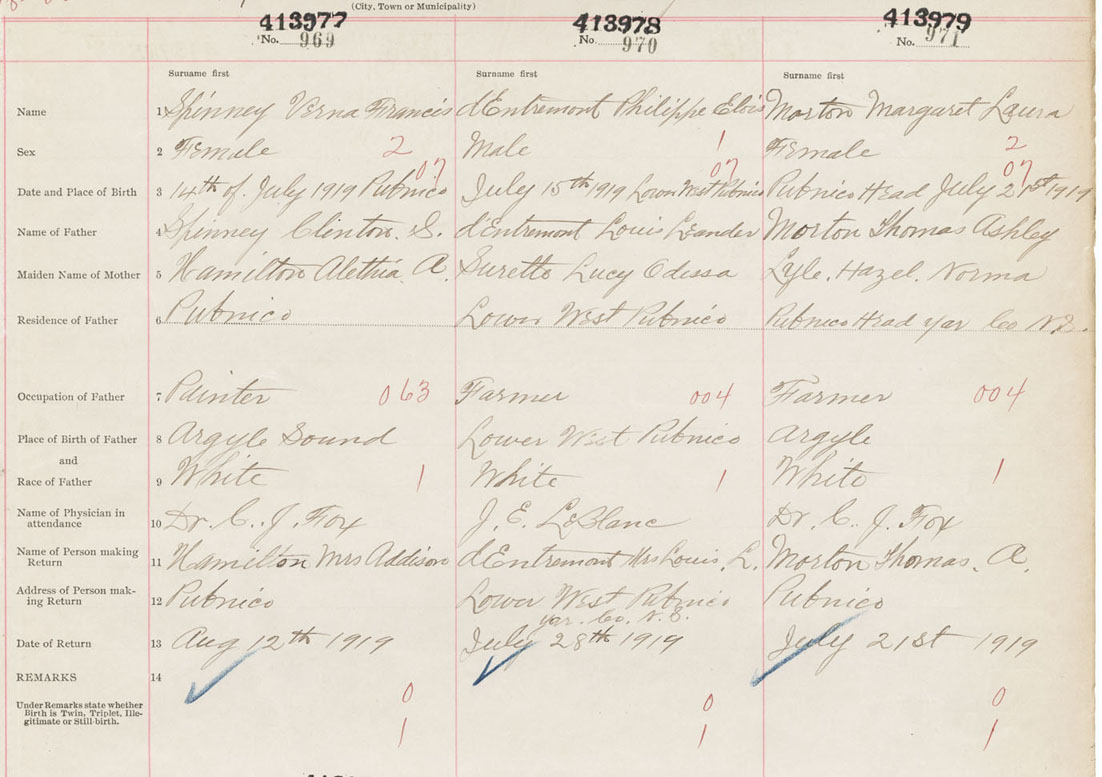 (City, Town or Municipality)
413977 413978 413979
No. 969 No. 970 No. 971
Surname first Surname first Surname first
Name 1 Spinney Verna Francis dEntremont Philippe Elois Morton Margaret Laura
Sex 2 Female 2 Male 1 Female 2
07 07 07
Date and Place of Birth 3 14th of July 1919 Pubnico July 15th 1919 Lower West Pubnico Pubnico Head July 21st 1919
Name of Father 4 Spinney Clinton. S. dEntremont Louis Leander Morton Thomas Ashley
Maiden Name of Mother 5 Hamilton Alethia A. Surette Lucy Odessa Lyle. Hazel. Norma
Residence of Father 6 Pubnico Lower West Pubnico Pubnico Head Yar Co N.S.
Occupation of Father 7 Painter 063 Farmer 004 Farmer 004
Place of Birth of Father 8 Argyle Sound Lower West Pubnico Argyle
and
Race of Father 9 White 1 White 1 White 1
Name of Physician in
attendance 10 Dr. C. J. Fox J. E. LeBlanc Dr. C. J. Fox
Name of Person making
Return 11 Hamilton Mrs Addison dEntremont Mrs Louis. L. Morton Thomas. A.
Address of Person mak-
ing Return 12 Pubnico Lower West Pubnico Pubnico
Yar. Co. N. S.
Date of Return 13 Aug 12th 1919 July 28th 1919 July 21st 1919
REMARKS 14
Under Remarks state whether
Birth is Twin, Triplet, Ille-
gitimate or Still-birth.
0 0 0
1 1 1